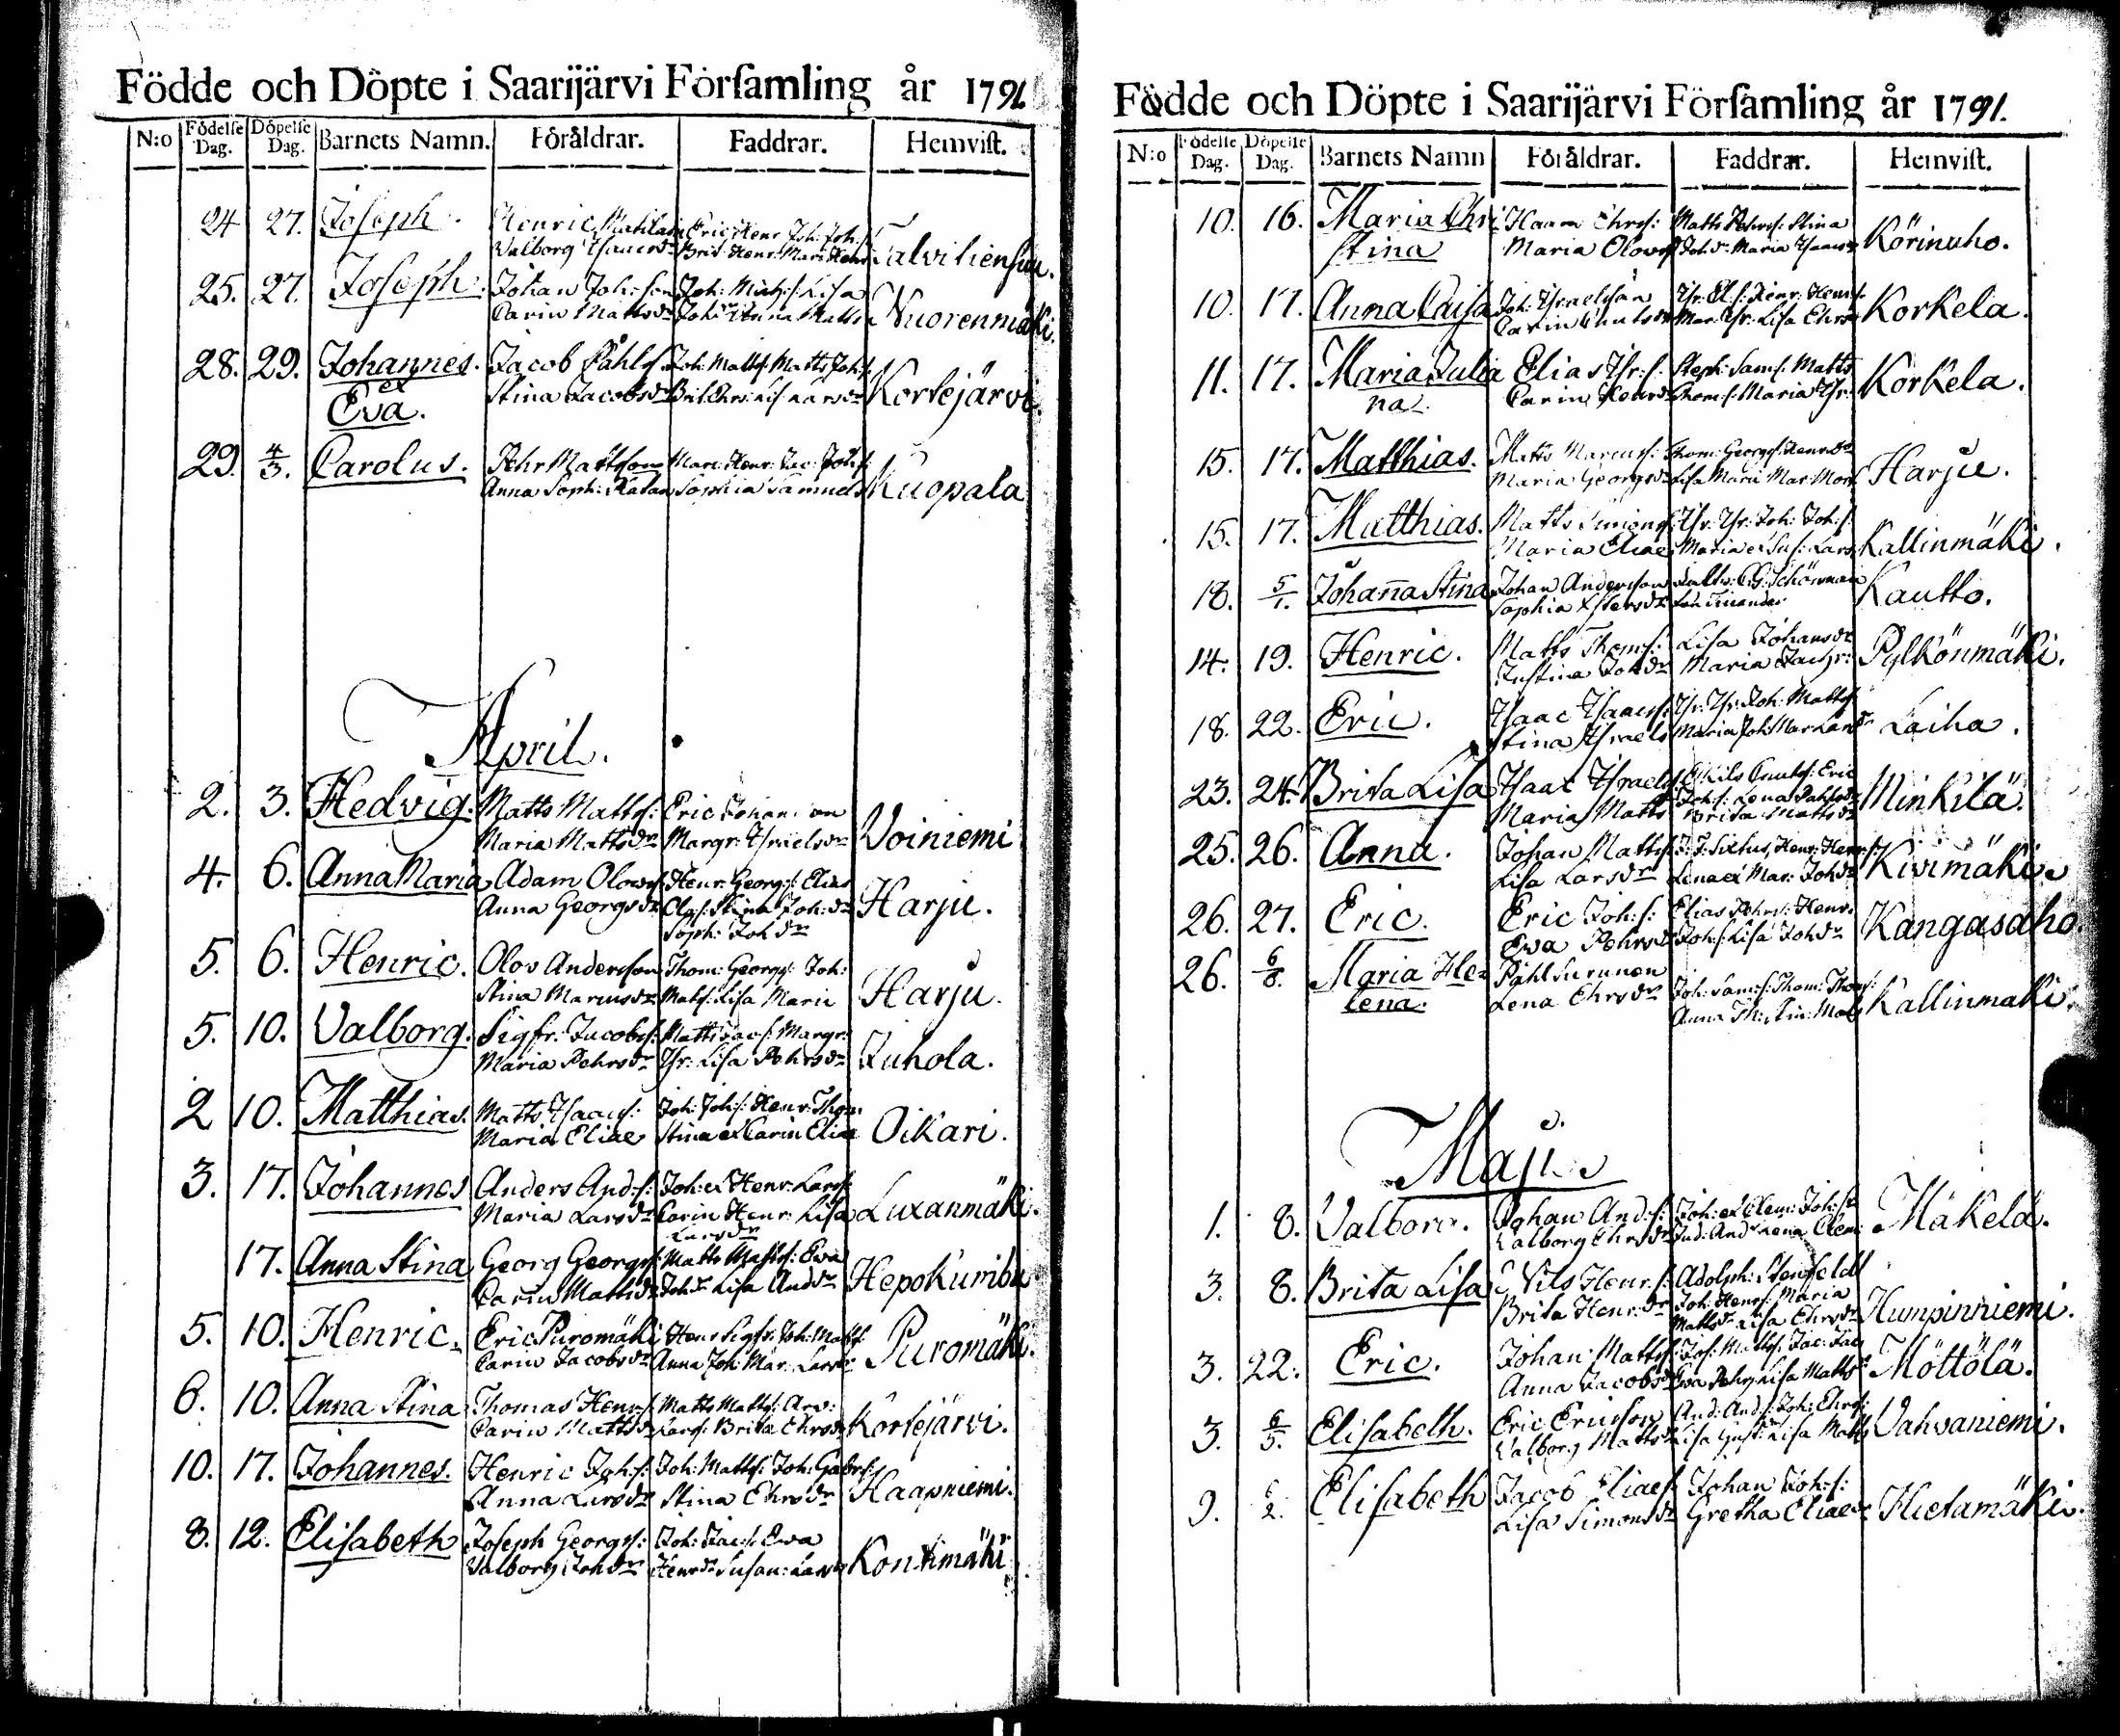 Födde och Döpte i Saarijärvi Församling år 1791.
N:o Födelse Dag. Döpelse Dag. Barnets Namn. Föräldrar. Faddrar. Hemvist.
24 27. Joseph. Henric Valborg Isaacsdr Eric Henr. Joh: Joh:
25. 27. Joseph. Johan Joh:son Carin Mattsdr Joh: Lisa Anna Matts Nuorenmäki.
28. 29. Johannes. et Eva. Jacob Påhls. Stina Jacobsdr Joh: Matts: Matts Joh:s: Brit. Ehrs: Lis. Larsdr Kortejärvi.
29. 4/3. Carolus. Pehr Mattson Anna Soph: Marc: Henr: Jac: Joh:s: Sophia Samuels Kuopala
April.
2. 3. Hedvig. Matts Matts: Maria Mattsdr Eric Johansson Margr: Israelsdr Voiniemi
4. 6. Anna Maria Adam Olows: Anna Georgsdr Henr: Georgs: Elias Olofs: Stina Joh:dr Soph: Joh dr Harju.
5. 6. Henric. Olov Andersson Stina Marcusdr Thom: Georgs: Joh: Mats: Lisa Marie Harju.
5. 10. Valborg. Sigfr: Jacobs: Maria Pehrsdr Matts Jacs: Margr: Isr: Lisa Pehrsdr Juhola.
2 10. Matthias. Matts Isaacs: Maria Eliae Joh: Joh:s: Henr: Thom Stina et Carin Eliae Oikari.
3. 17. Johannes Anders And:s: Maria Larsdr Joh: et Henr: Lars: Carin Henr: Lisa Larsdr Luxanmäki.
17. Anna Stina Georg Georgs: Carin Mattsdr Matts Matts: Ewa Joh:dr Lisa Anddr
5. 10. Henric. Eric Puromäki Carin Jacobsdr Henr Sigfr: Joh: Matts: Anna Joh: Mar: Larsdr Puromäki.
6. 10. Anna Stina Thomas Henrs: Carin Mattsdr Matts Matts: Arv: Lars: Brita Ehrsdr Kortejärvi.
10. 17. Johannes. Henric Joh:s: Anna Larsdr Joh: Matts: Joh: Gabrs: Stina Ehrsdr Haapniemi.
8. 12. Elisabeth Joseph Georgs: Valborg Johdr Joh: Jacs: Ewa Henrdr Susan: Lars Kontimäki
Födde och Döpte i Saarijärvi Församling år 1791.
N:o Födelse Dag. Döpelse Dag. Barnets Namn Föräldrar. Faddrar. Hemvist.
10. 16. Maria Chri stina Ehrs: Maria Olowsdr Matts Pehrs: Stina Joh dr Maria Isaacsdr Körinuho.
10. 17. Anna Caisa Joh: Israelsson Carin Isr: El:s: Henr: Henr:s: Mar: Isr: Lisa Ehrsdr Korkela.
11. 17. Maria Julia na Elias Isr:s: Carin Henrsdr Steph: Sams: Matts Thom:s: Maria Isr: Korkela.
15. 17. Matthias. Matts Marcuss: Maria Georgsdr Thom: Georgs: Lisa Marii Mar: Harju.
15. 17. Matthias. Matts Simons: Maria Eliae Isr: Isr: Joh: Joh:s: Maria et Sus: Lars Kallinmäki.
18. 5/1. Johanna Stina Johan Andersson Sophia Kautto.
14. 19. Henric. Matts Thoms: Justina Johdr Lisa Johansdr Maria Zachr: Pylkönmäki.
18. 22. Eric. Isaac Isaacs: Stina Israels Isr: Isr: Joh: Matts: Maria Joh: Mar: Larsdr Laiha.
23. 24. Brita Lisa Isaac Israels: Maria Matts Eskils Cnuts: Eric Joh:s: Lena Påhlsdr Brita Mattsdr Minkilä.
25. 26. Anna. Johan Matts: Lisa Larsdr J: J: Sixtus, Henr: Henr:s: Lena et Mar: Johdr Kivimäki.
26. 27. Eric. Eric Joh:s: Ewa Pehrsdr Elias Pehrs: Henr. Joh:s: Lisa Johdr Kangasaho.
26. 6/8. Maria Hel= lena. Påhl Surunen Lena Ehrsdr Joh: Sam:s: Thom: Thoms: Anna Th: Stin: Mats Kallinmaki.
Maji.
1. 8. Valborg. Johan And:s: Valborg Ehrsdr Joh: et Clem: Joh:s: Jud: Anddr Lena Clem: Mäkelä.
3. 8. Brita Lisa Nils Henr:s: Brita Henr:dr Adolph: Stenfeldt Joh: Henrs: Maria Mattsdr Lisa Ehrsdr Humpinniemi.
3. 22. Eric. Johan Matts: Anna Jacobsdr Jos: Matts: Jac: Jac: Eva Pehrs Lisa Matts Möttölä.
3. 6/5. Elisabeth. Eric Ericsson Valborg Mattsdr And: And:s: Joh: Ehrs: Lisa Gust: Lisa Matts Vahvaniemi.
9. 6/2. Elisabeth Jacob Eliaes: Lisa Simonsdr Johan Joh:s: Gretha Eliae Hietamäki.